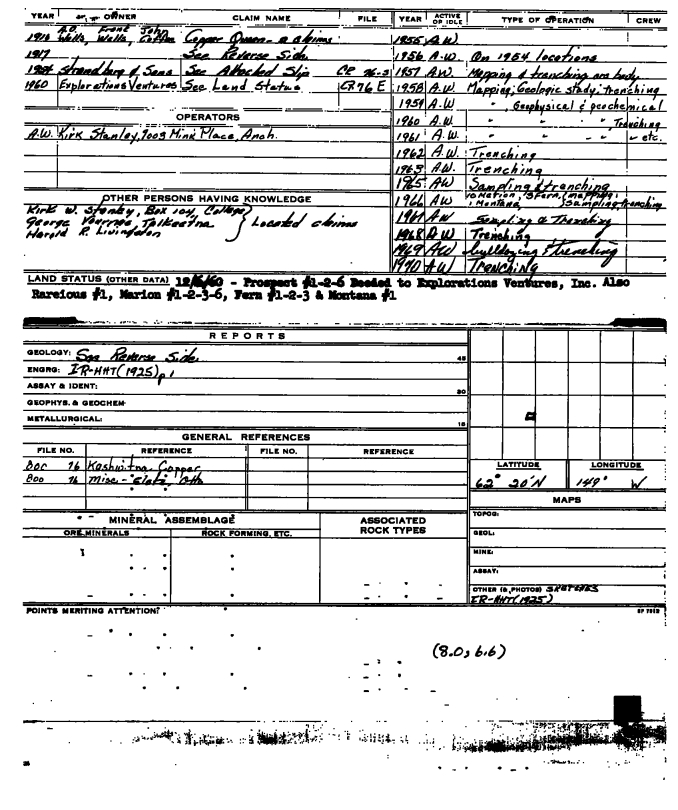 YEAR OWNER CLAIM NAME FILE
1910 A.D. Wells, Frank Wells, John Coffee Copper Queen - 2 claims
1917 See Reverse Side
1954 Strandberg & Sons See Attached Slip CR 76-2
1960 Explorations Ventures See Land Status CR 76 E
OPERATORS
A.W. Kirk Stanley, 1003 Mink Place, Anch.
OTHER PERSONS HAVING KNOWLEDGE
Kirk W. Stanley, Box 104, College
George Talkeetna
Harold R. Livingston
Located claims
YEAR ACTIVE OR IDLE TYPE OF OPERATION CREW
1955 A.W.
1956 A.W. On 1954 locations
1957 A.W. Mapping & trenching ore body
1958 A.W. Mapping, Geologic study, trenching
1959 A.W " , Geophysical & geochemical
1960 A.W. " " " , Trenching
1961 A.W. " " " " etc.
1962 A.W. Trenching
1963 A.W. Trenching
1965 AW Sampling & trenching
1966 AW on Marion, 3 Fern, 1 Montana (mapping, Sampling, trenching
1967 AW Sampling & Trenching
1968 AW Trenching
1969 AW bulldozing & trenching
1970 AW Trenching
LAND STATUS (OTHER DATA) 12/6/60 - Prospect #1-2-6 Deeded to Explorations Ventures, Inc. Also
Rareious #1, Marion #1-2-3-6, Fern #1-2-3 & Montana #1
REPORTS
GEOLOGY: See Reverse Side 45
ENGRG: IR-HHT(1925) p 1
ASSAY & IDENT: 30
GEOPHYS. & GEOCHEM
METALLURGICAL: 15
GENERAL REFERENCES
FILE NO. REFERENCE FILE NO. REFERENCE
Doc 76 Kashwitna Copper
Doo 76 Misc -
LATITUDE LONGITUDE
62° 20'N 149° W
MAPS
TOPOG:
GEOL:
MINE:
ASSAY:
OTHER (& PHOTOS) SKETCHES
IR-HHT(1925)
MINERAL ASSEMBLAGE ASSOCIATED ROCK TYPES
ORE MINERALS ROCK FORMING, ETC.
POINTS MERITING ATTENTION:
(8.0, 6.6)